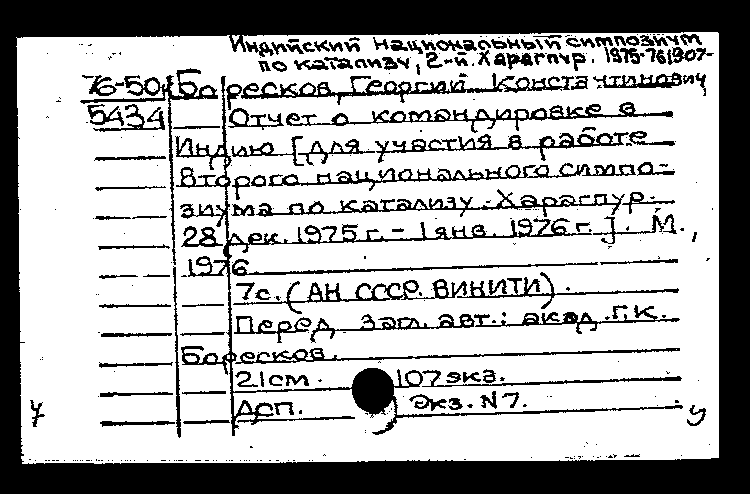 Индийский национальный симпозиум
по катализу, 2-й. Харагпур. 1975-761907-
76-50/ Боресков, Георгий Константинович
5434 Отчет о командировке в
Индию [для участия в работе
Второго национального симпо-
зиума по катализу. Харагпур.
28 дек. 1975 г. - 1 янв. 1976 г.]. М.,
1976.
7с. (АН СССР. ВИНИТИ).
Перед загл. авт.: акад. Г.К.
Боресков.
21см. 107экз.
Дсп. Экз. N7.
у